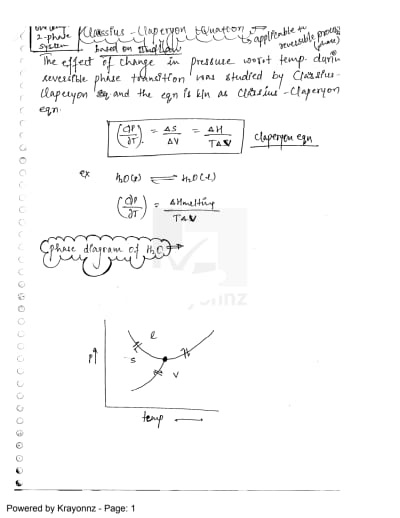 2-phase
system
Classius - Claperyon Equation → applicable to
reversible process
based on
The effect of change in pressure w.r.t temp. during
reversible phase transition was studied by Classius-
Claperyon and the eqn is k/n as Classius - Claperyon
eqn.
(dP/dT) = ΔS/ΔV = ΔH/TΔV
Claperyon eqn
ex H2O(s) ⇌ H2O(l)
(dP/dT) = ΔHmelting/TΔV
phase diagram of H2O
P↑
l
S
V
temp
Powered by Krayonnz - Page: 1